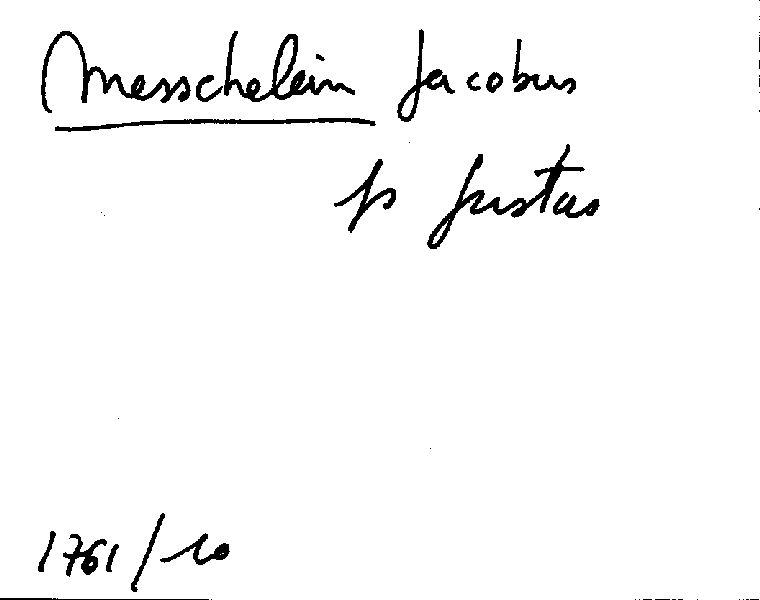 Messchelein Jacobus
fs Justus
1761/10